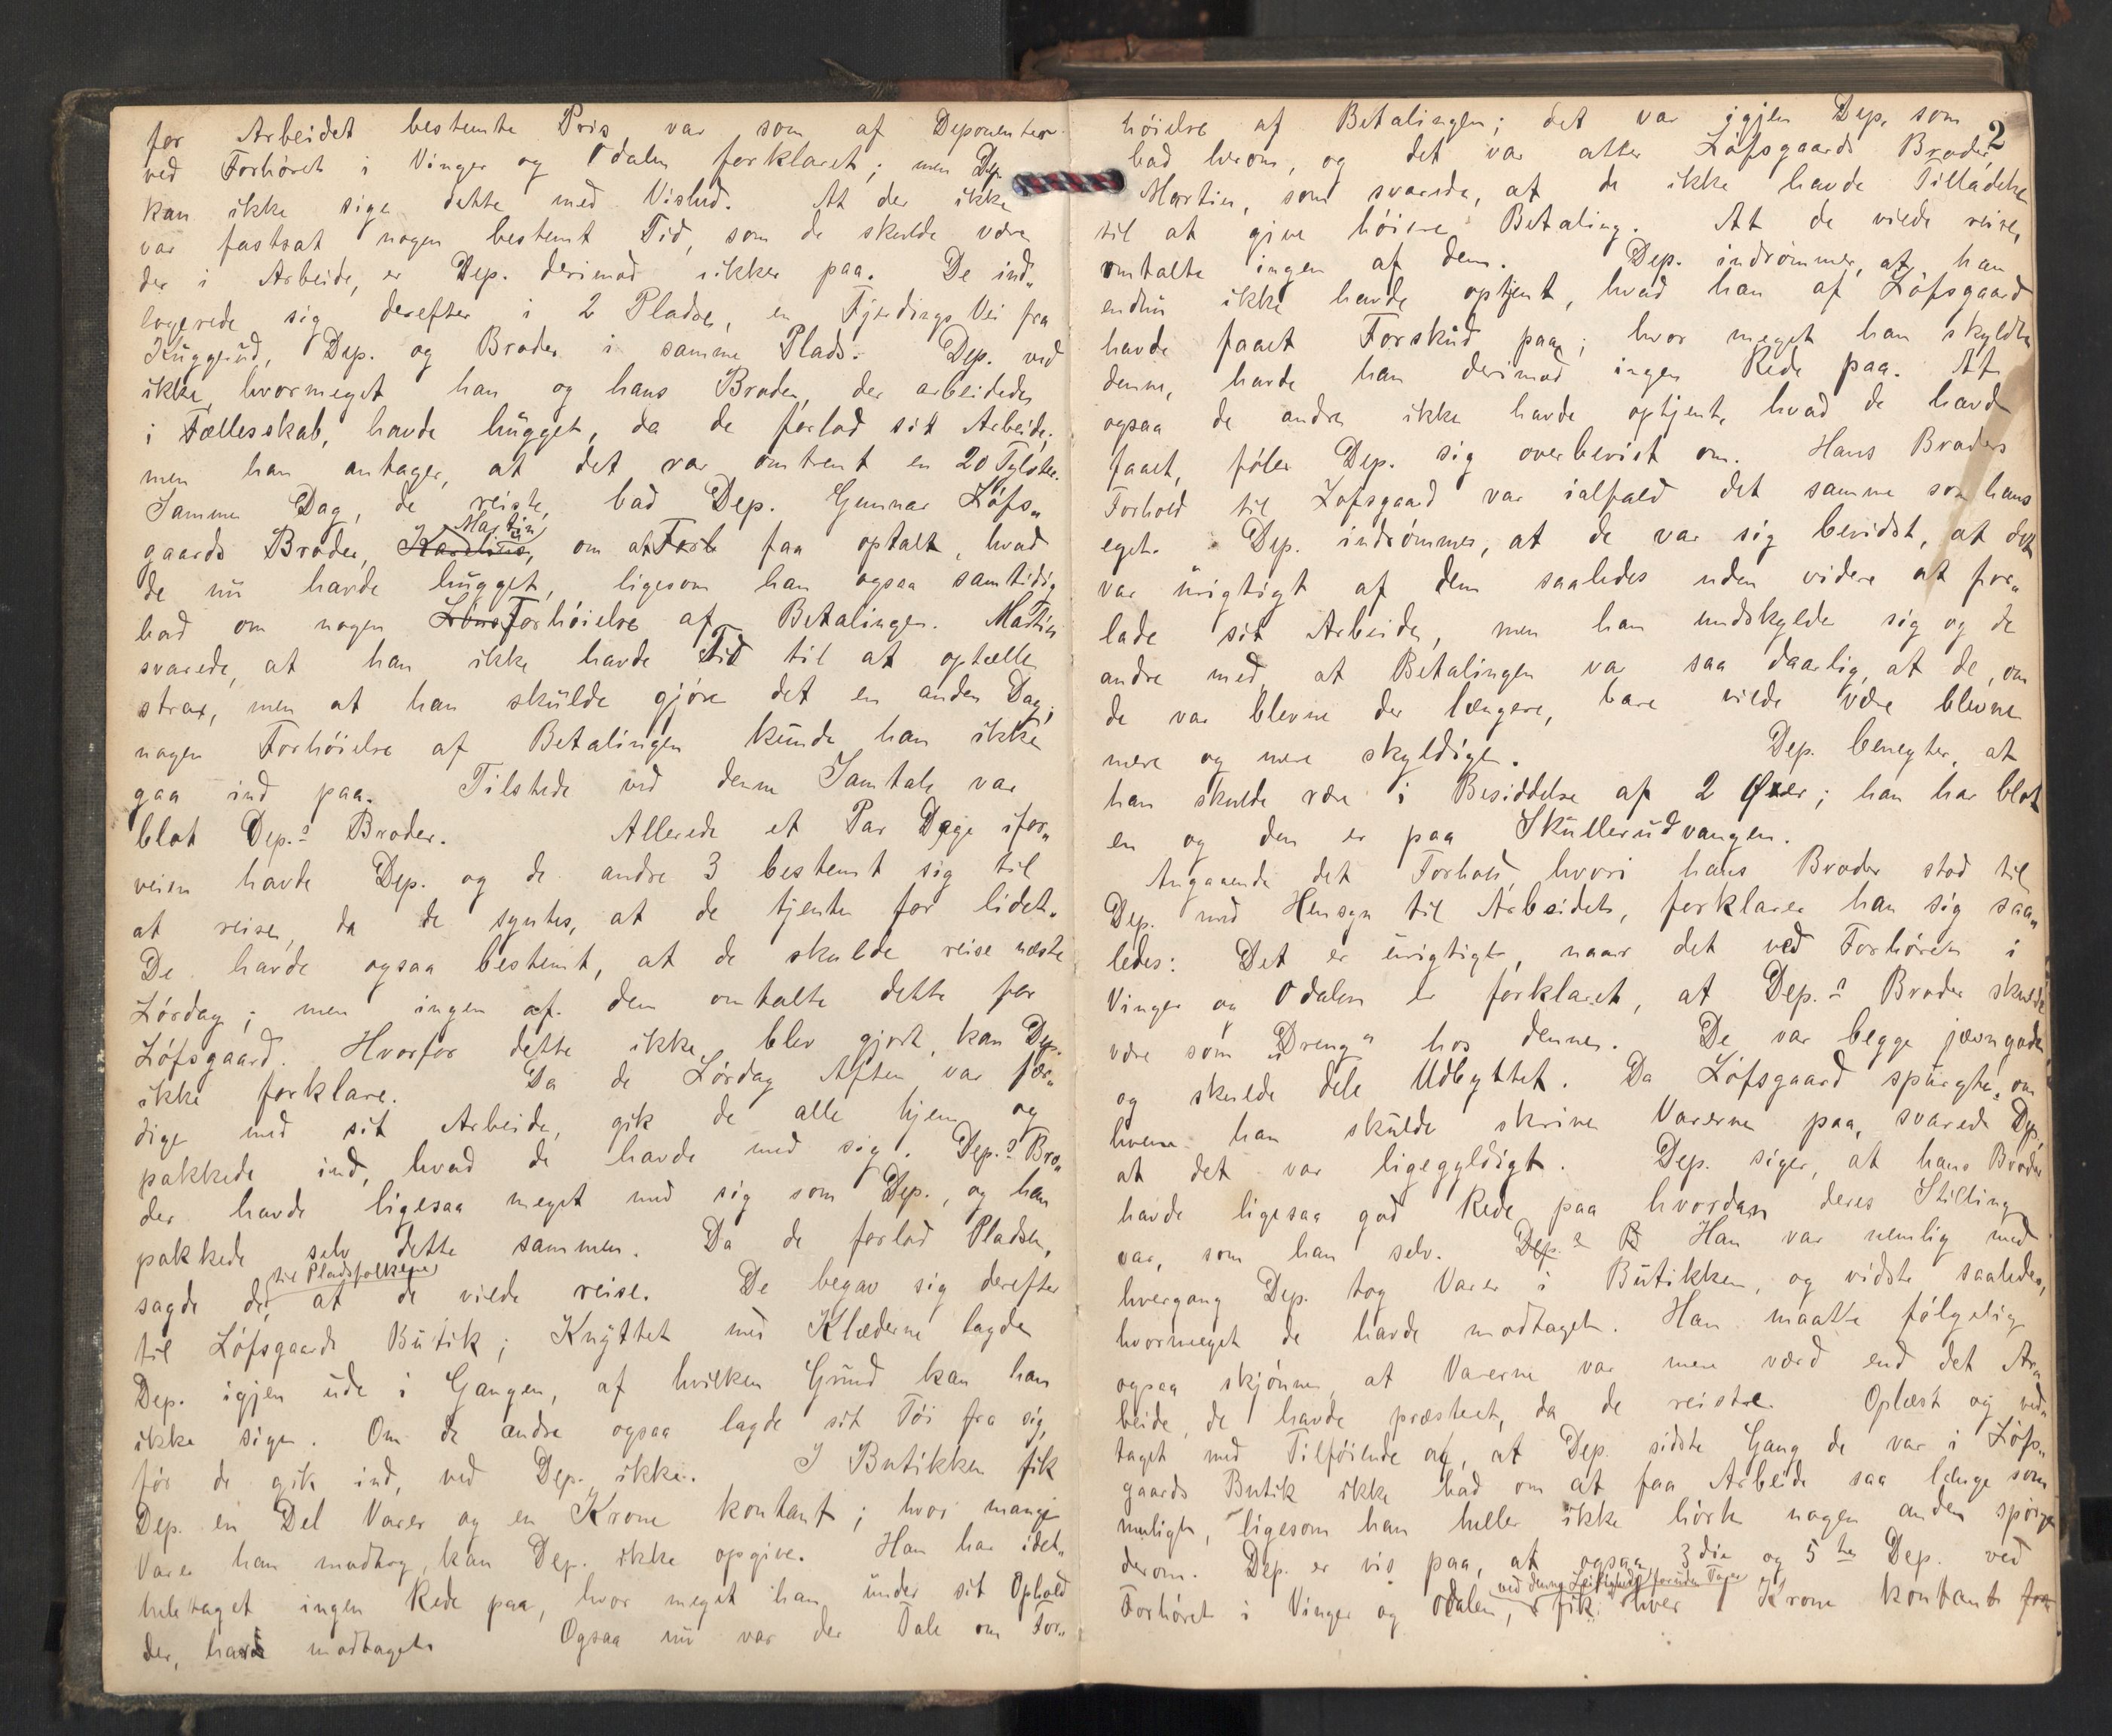 for Arbeidet bestemte Pris var som af Deponenten
ved Forhöret i Vinger og Odalen forklaret; men Dep.
kan ikke sige dette med Vished. At der ikke
var fastsat nogen bestemt Tid, som de skulde være
der i Arbeide, er Dep. derimod sikker paa. De ind„
logerede sig derefter i 2 Pladser, en Fjerdings Vei fra
Kuggerud, Dep. og Broder i samme Plads. Dep. ved
ikke, hvormeget han og hans Broder, der arbeidede
i Fællesskab, havde hugget, da de forlod sit Arbeide;
men han antager, at det var omtrent en 20 Tylvter.
Samme Dag, de reiste, bad Dep. Gunnar Löfs„
Martin
gaards Broder, om at Forb faa optalt, hvad
de nu havde hugget, ligesom han ogsaa samtidig
bad om nogen Löns Forhöielse af Betalingen. Martin
svarede, at han ikke havde Tid til at optælle
strax, men at han skulde gjöre det en anden Dag;
nogen Forhöielse af Betalingen kunde han ikke
gaa ind paa. Tilstede ved denne Samtale var
blot Dep.s Broder. Allerede et Par Dage ifor„
veien havde Dep. og de andre 3 bestemt sig til
at reise, da de syntes, at de tjente for lidet.
De havde ogsaa bestemt, at de skulde reise næste
Lördag; men ingen af dem omtalte dette for
Löfsgaard. Hvorfor dette ikke blev gjort, kan Dep.
ikke forklare. Da de Lördag Aften var fær„
dige med sit Arbeide, gik de alle hjem og
pakkede ind, hvad de havde med sig. Dep.s Bro„
der havde ligesaa meget med sig som Dep., og han
pakkede selv dette sammen. Da de forlod Pladsen,
til Pladsfolkene
sagde de, at de vilde reise. De begav sig derefter
til Löfsgaards Butik; Knyttet med Klæderne lagde
Dep. igjen ude i Gangen, af hvilken Grund kan han
ikke sige. Om de andre ogsaa lagde sit Töi fra sig,
för de gik ind, ved Dep. ikke. I Butikken fik
Dep. en Del Varer og en Krone kontant; hvor mange
Varer han modtog, kan Dep. ikke opgive. Han har idet„
heletaget ingen Rede paa, hvor meget han under sit Ophold
der, havde modtaget. Ogsaa nu var der Tale om For„
2
höielse af Betalingen; det var igjen Dep. som
bad herom, og det var atter Löfsgaards Broder,
Martin, som svarede, at de ikke havde Tilladelse
til at give höiere Betaling. At de vilde reise,
omtalte ingen af dem. Dep. indrömmer, at han
endnu ikke havde optjent, hvad han af Löfsgaard
havde faaet Forskud paa; hvor meget han skyldte
denne, havde han derimod ingen Rede paa. At
ogsaa de andre ikke havde optjent, hvad de havde
faaet, föler Dep. sig overbevist om. Hans Broders
Forhold til Löfsgaard var ialfald det samme som hans
eget. Dep. indrömmer, at de var sig bevidst, at det
var urigtigt af dem saaledes uden videre at for„
lade sit Arbeide, men han undskylder sig og de
andre med, at Betalingen var saa daarlig, at de, om
de var blevne der længere, bare vilde være blevne
mere og mere skyldige. Dep. benegter, at
han skulde være i Besiddelse af 2 Øxer; han har blot
en og den er paa Skullerudvangen.
Angaaende det Forhold, hvori hans Broder stod til
Dep. med Hensyn til Arbeidet, forklarer han sig saa„
ledes: Det er urigtigt, naar det ved Forhöret i
Vinger og Odalen er forklaret, at Dep.s Broder skulde
være som „Dreng“ hos denne. De var begge jævngode
og skulde dele Udbyttet. Da Löfsgaard spurgte, om
hvem han skulde skrive Varerne paa, svarede Dep.,
at det var ligegyldigt. Dep. siger, at hans Broder
havde ligesaa god Rede paa hvordan deres Stilling
var, som han selv. Dep.s B Han var nemlig med
hvergang Dep. tog Varer i Butikken, og vidste saaledes,
hvormeget de havde modtaget. Han maatte fölgelig
ogsaa skjönne, at Varerne var mere værd end det Ar„
beide, de havde præsteret, da de reiste. Oplæst og ved„
taget med Tilföiende af, at Dep. sidste Gang de var i Löfs„
gaards Butik ikke bad om at faa Arbeide saa længe som
muligt, ligesom han heller ikke hörte nogen anden spörge
derom. Dep. er vis paa, at ogsaa 3die og 5te Dep. ved
ved denne Leilighed foruden Varer
Forhöret i Vinger og Odalen, fik hver 1 Krone kontant for